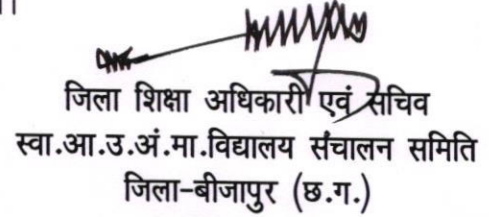 जिला शिक्षा अधिकारी एवं सचिव
स्वा.आ.उ.अं.मा.विद्यालय संचालन समिति
जिला-बीजापुर (छ.ग.)